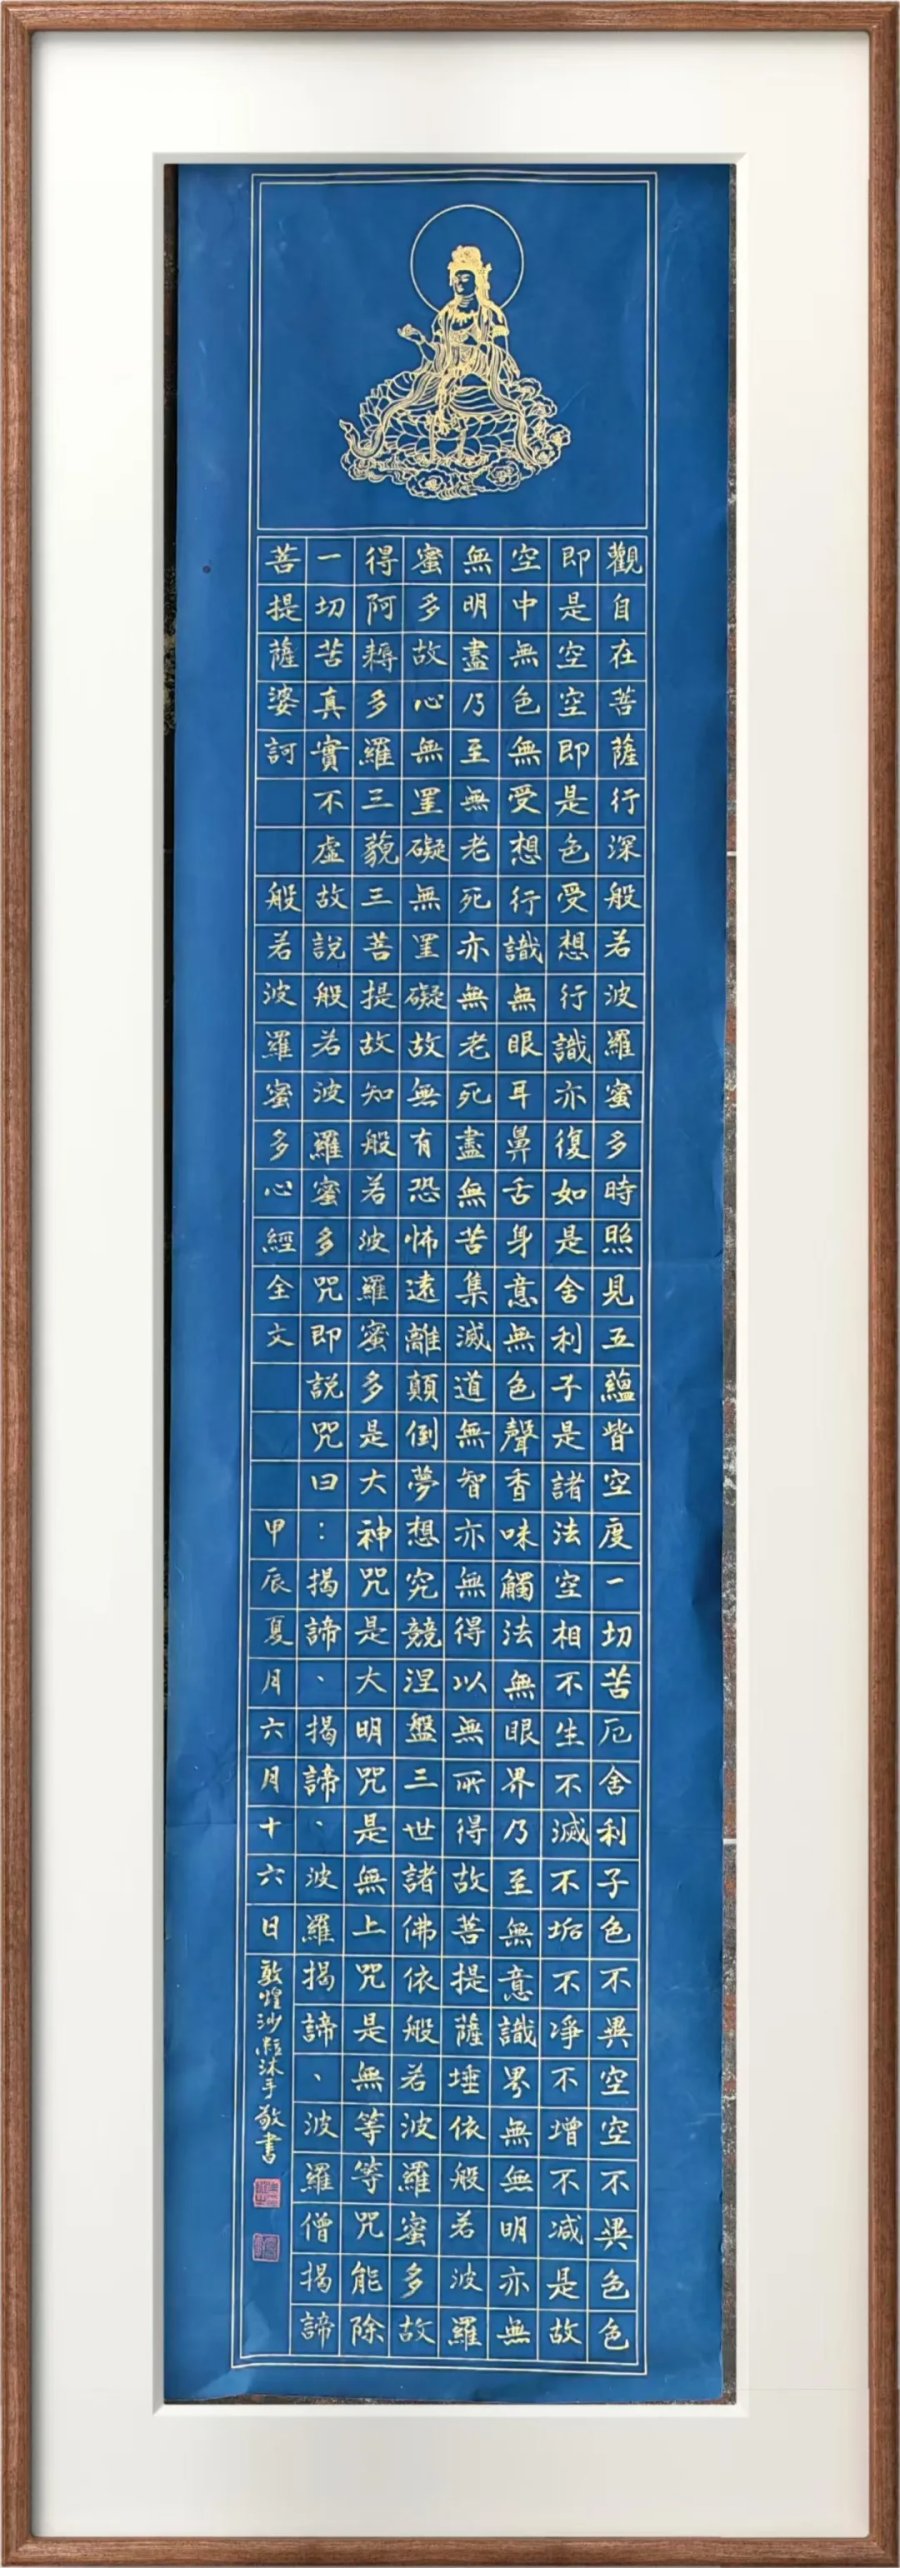 觀自在菩薩行深般若波羅蜜多時照見五蘊皆空度一切苦厄舍利子色不異空空不異色色
即是空空即是色受想行識亦復如是舍利子是諸法空相不生不滅不垢不淨不增不減是故
空中無色無受想行識無眼耳鼻舌身意無色聲香味觸法無眼界乃至無意識界無無明亦無
無明盡乃至無老死亦無老死盡無苦集滅道無智亦無得以無所得故菩提薩埵依般若波羅
蜜多故心無罣礙無罣礙故無有恐怖遠離顛倒夢想究競涅盤三世諸佛依般若波羅蜜多故
得阿耨多羅三藐三菩提故知般若波羅蜜多是大神咒是大明咒是無上咒是無等等咒能除
一切苦真實不虛故說般若波羅蜜多咒即説咒曰：揭諦、揭諦、波羅揭諦、波羅僧揭諦
菩提薩婆訶 般若波羅蜜多心經全文 甲辰夏月六月十六日 敦煌沙粒沐手敬書